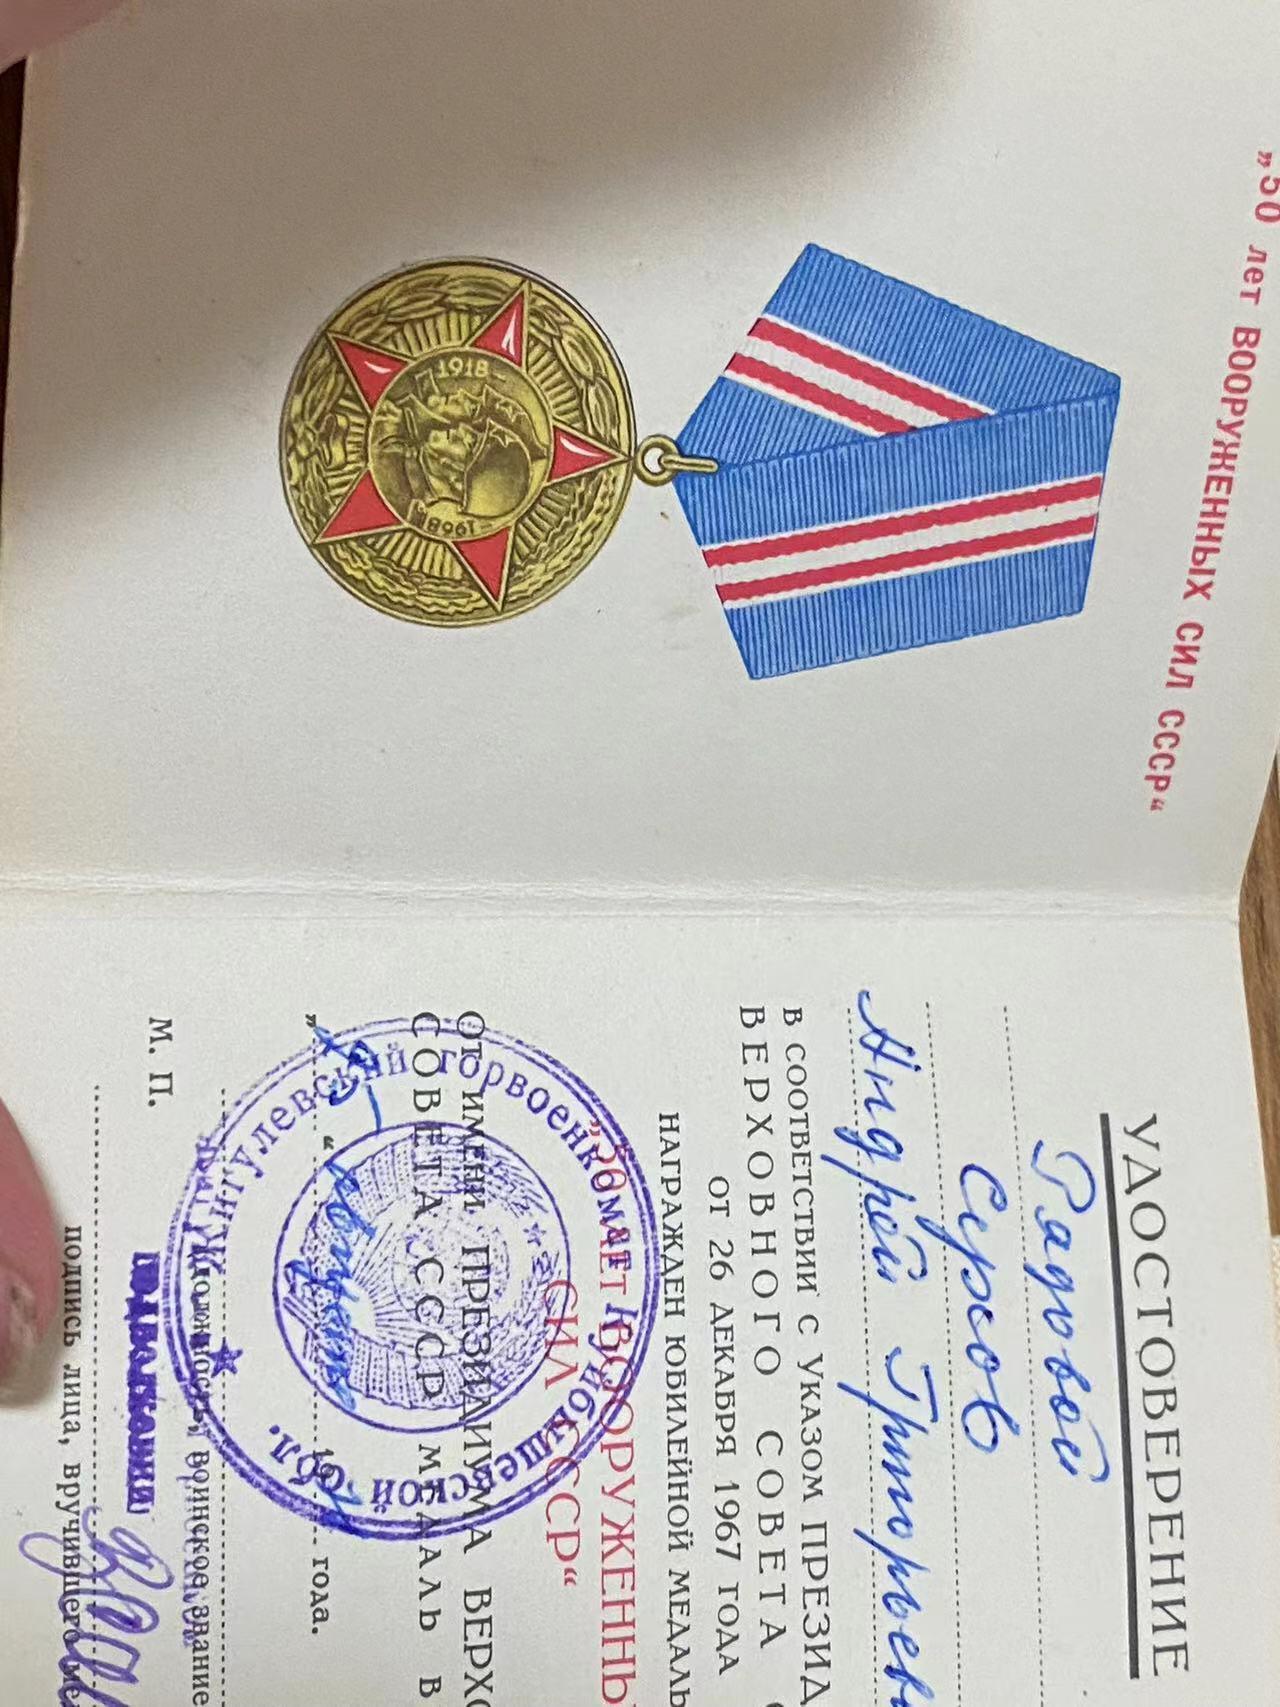 „50 лет ВООРУЖЕННЫХ СИЛ СССР“
1918
1968
УДОСТОВЕРЕНИЕ
Рядовой
Серов
Андрей Григорьев
В СООТВЕТСТВИИ С УКАЗОМ ПРЕЗИД
ВЕРХОВНОГО СОВЕТА
ОТ 26 ДЕКАБРЯ 1967 ГОДА
НАГРАЖДЕН ЮБИЛЕЙНОЙ МЕДАЛЬ
„50 ЛЕТ ВООРУЖЕННЫ
СИЛ СССР“
От имени ПРЕЗИДИУМА ВЕРХО
СОВЕТА СССР медаль в
“ августа 19 года.
Жигулевский горвоенкомат Куйбышевской обл.
(должность, воинское звание
М. П.
подпись лица, вручившего ме